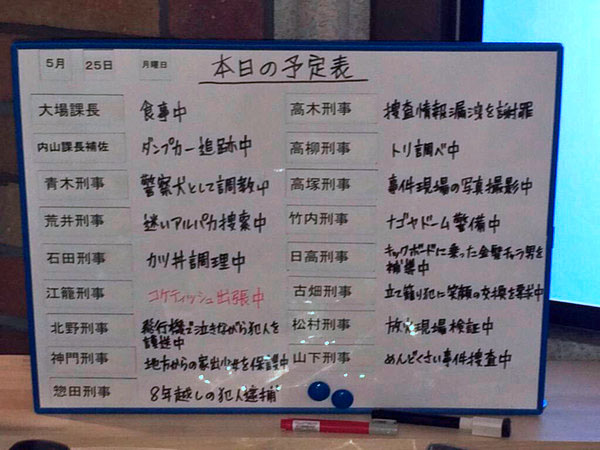 5月 25日 月曜日 本日の予定表
大場課長 食事中
内山課長補佐 ダンプカー追跡中
青木刑事 警察犬として調教中
荒井刑事 迷いアルパカ捜索中
石田刑事 カツ丼調理中
江籠刑事 コケティッシュ出張中
北野刑事 飛行機で泣きながら犯人を
護送中
神門刑事 地方からの家出少女を保護中
惣田刑事 8年越しの犯人逮捕
高木刑事 捜査情報漏洩を謝罪
高柳刑事 トリ調べ中
高塚刑事 事件現場の写真撮影中
竹内刑事 ナゴヤドーム警備中
日高刑事 キックボードに乗った金髪チャラ男を
捕獲中
古畑刑事 立て籠り犯に笑顔の交換を要求中
松村刑事 放火現場検証中
山下刑事 めんどくさい事件捜査中